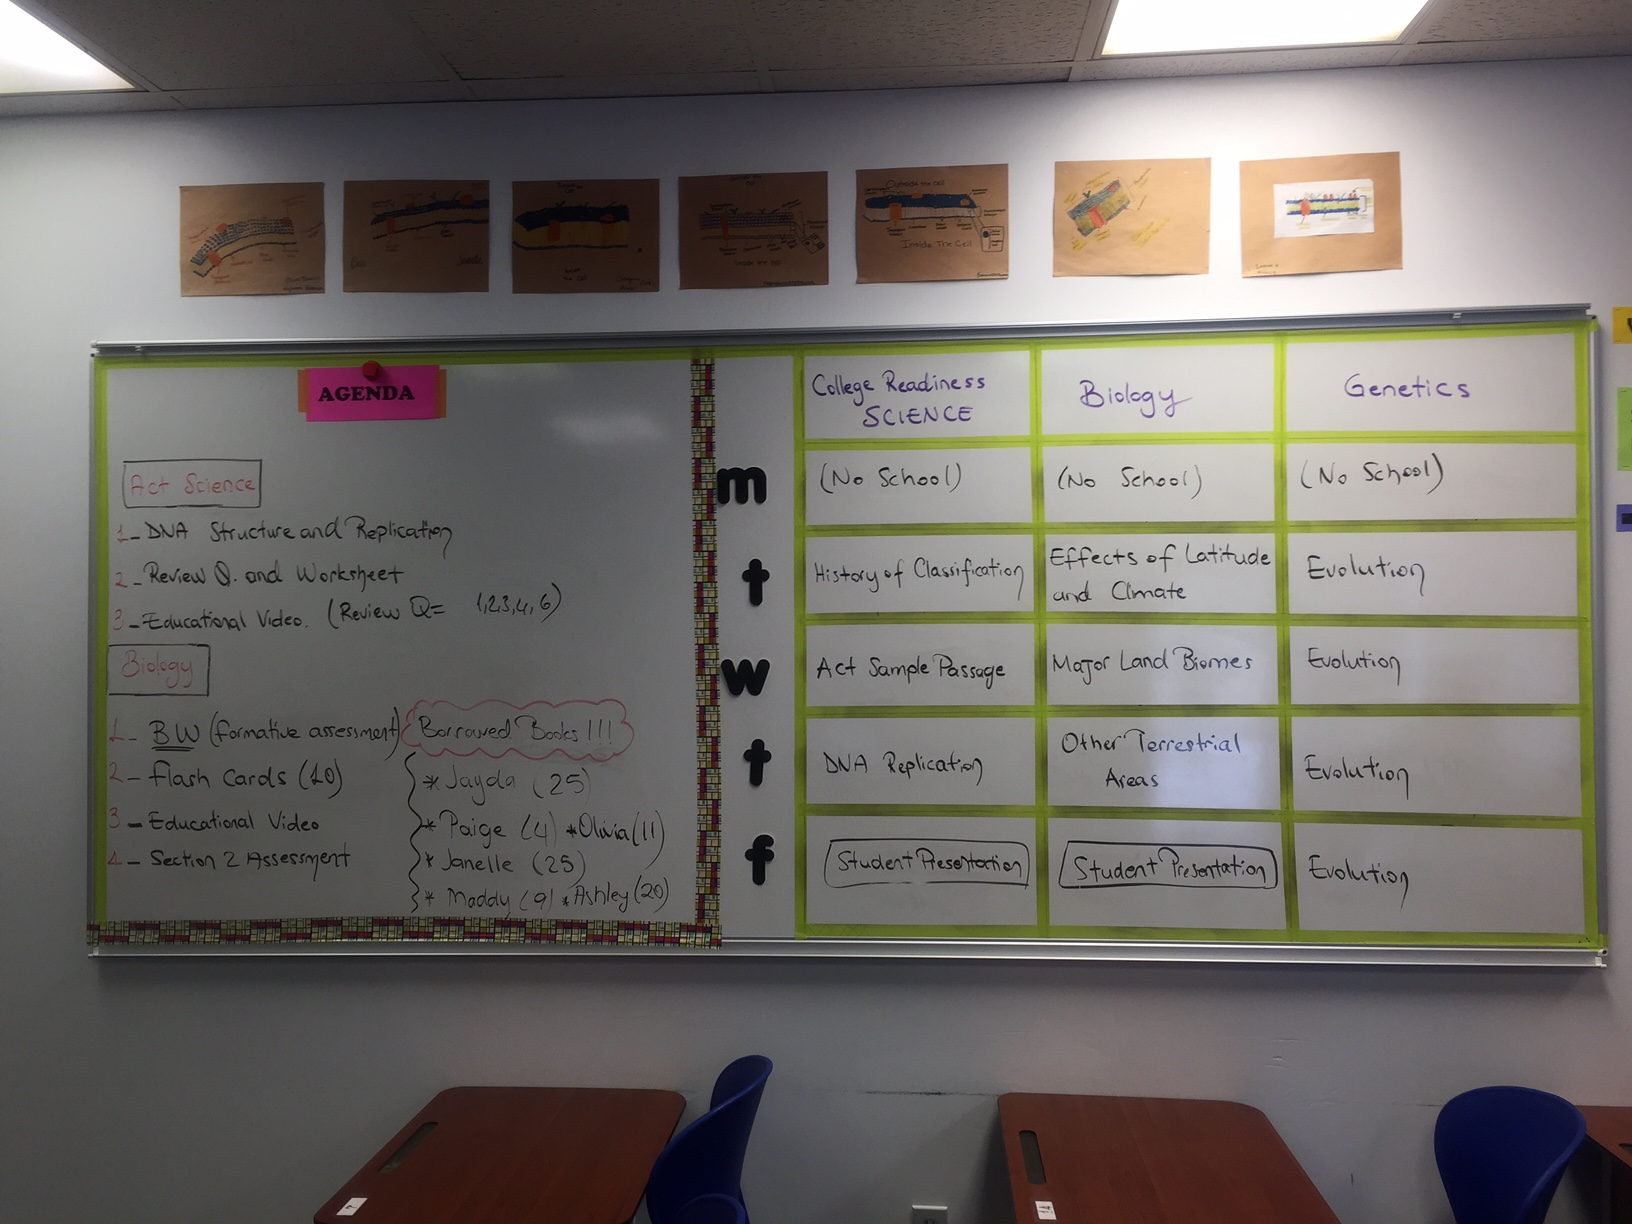 Outside the cell
Inside The Cell
AGENDA
Act Science
1- DNA Structure and Replication
2- Review Q. and Worksheet
3- Educational Video. (Review Q= 1,2,3,4,6)
Biology
1- BW (formative assessment)
2- Flash Cards (10)
3- Educational Video
4- Section 2 Assessment
Borrowed Books!!!
* Jayda (25)
* Paige (4) * Olivia (11)
* Janelle (25)
* Maddy (9) * Ashley (20)
College Readiness
SCIENCE
Biology
Genetics
m
(No School)
(No School)
(No School)
t
History of Classification
Effects of Latitude
and Climate
Evolution
w
Act Sample Passage
Major Land Biomes
Evolution
t
DNA Replication
Other Terrestrial
Areas
Evolution
f
Student Presentation
Student Presentation
Evolution